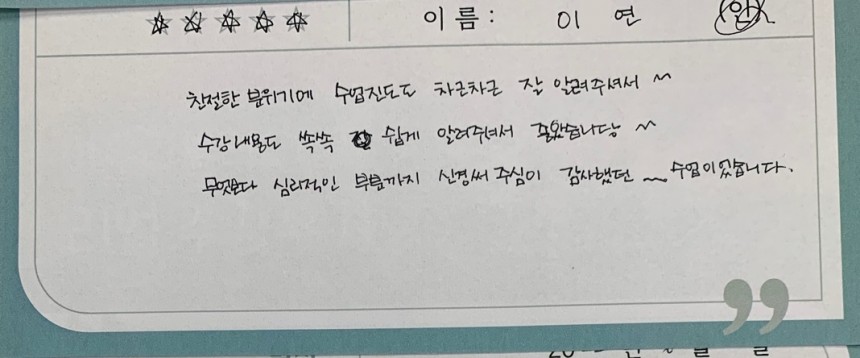 이름: 이 연 인
친절한 분위기에 수업진도도 차근차근 잘 알려주셔서 ~
수강내용도 쏙쏙 쉽게 알려주셔서 좋았습니당 ~
무엇보다 심리적인 부분까지 신경써 주심이 감사했던 ~ 수업이었습니다.
”